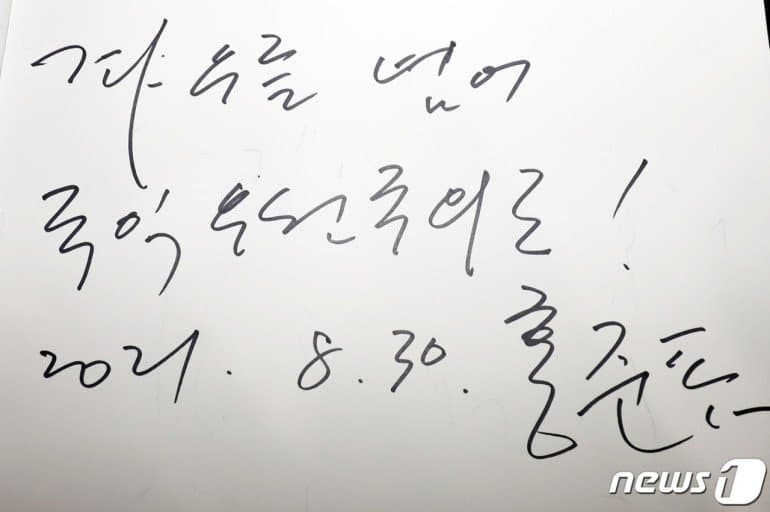 좌우를 넘어
국익 우선주의로!
2021. 8. 30. 홍준표
news1